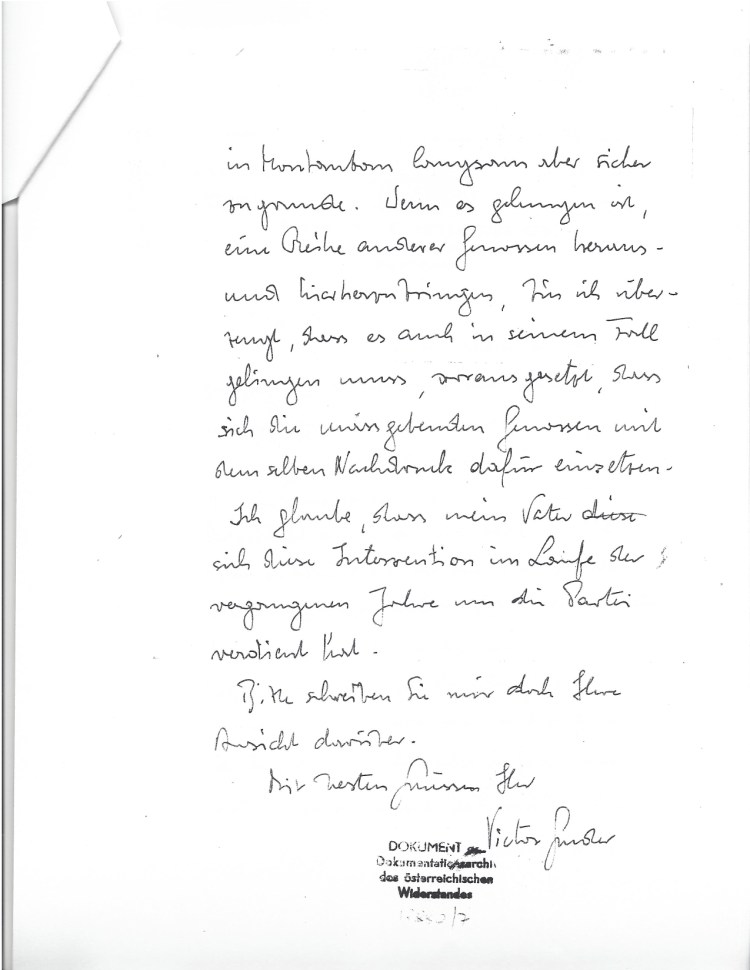 in Montauban langsam aber sicher
zugrunde. Wenn es gelungen ist,
eine Reihe anderer Genossen heraus-
und hierherzubringen, bin ich über-
zeugt, dass es auch in seinem Fall
gelingen muss, vorausgesetzt, dass
sich die massgebenden Genossen mit
demselben Nachdruck dafür einsetzen.
Ich glaube, dass mein Vater diese
sich diese Intervention im Laufe der
vergangenen Jahre um die Partei
verdient hat.
Bitte schreiben Sie mir doch Ihre
Ansicht darüber.
Mit besten Grüssen Ihr
Victor
DOKUMENT
Dokumentationsarchiv
des österreichischen
Widerstandes